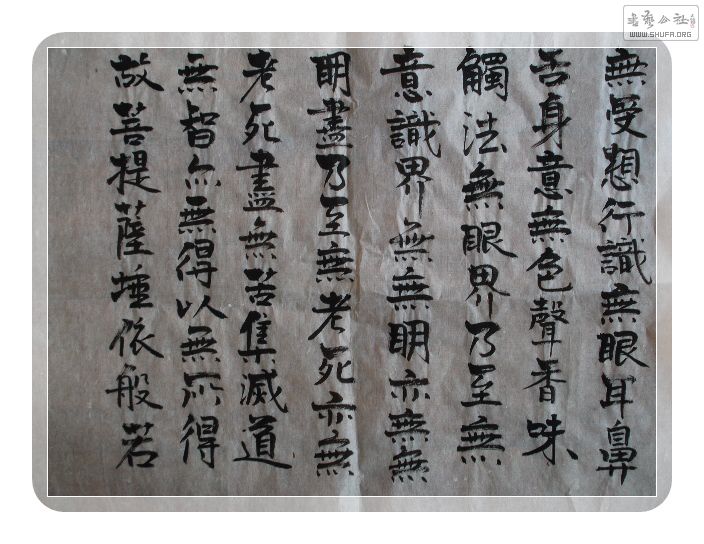 無受想行識無眼耳鼻
舌身意無色聲香味
觸法無眼界乃至無
意識界無無明亦無無
明盡乃至無老死亦無
老死盡無苦集滅道
無智亦無得以無所得
故菩提薩埵依般若
書藝公社
WWW.SHUFA.ORG